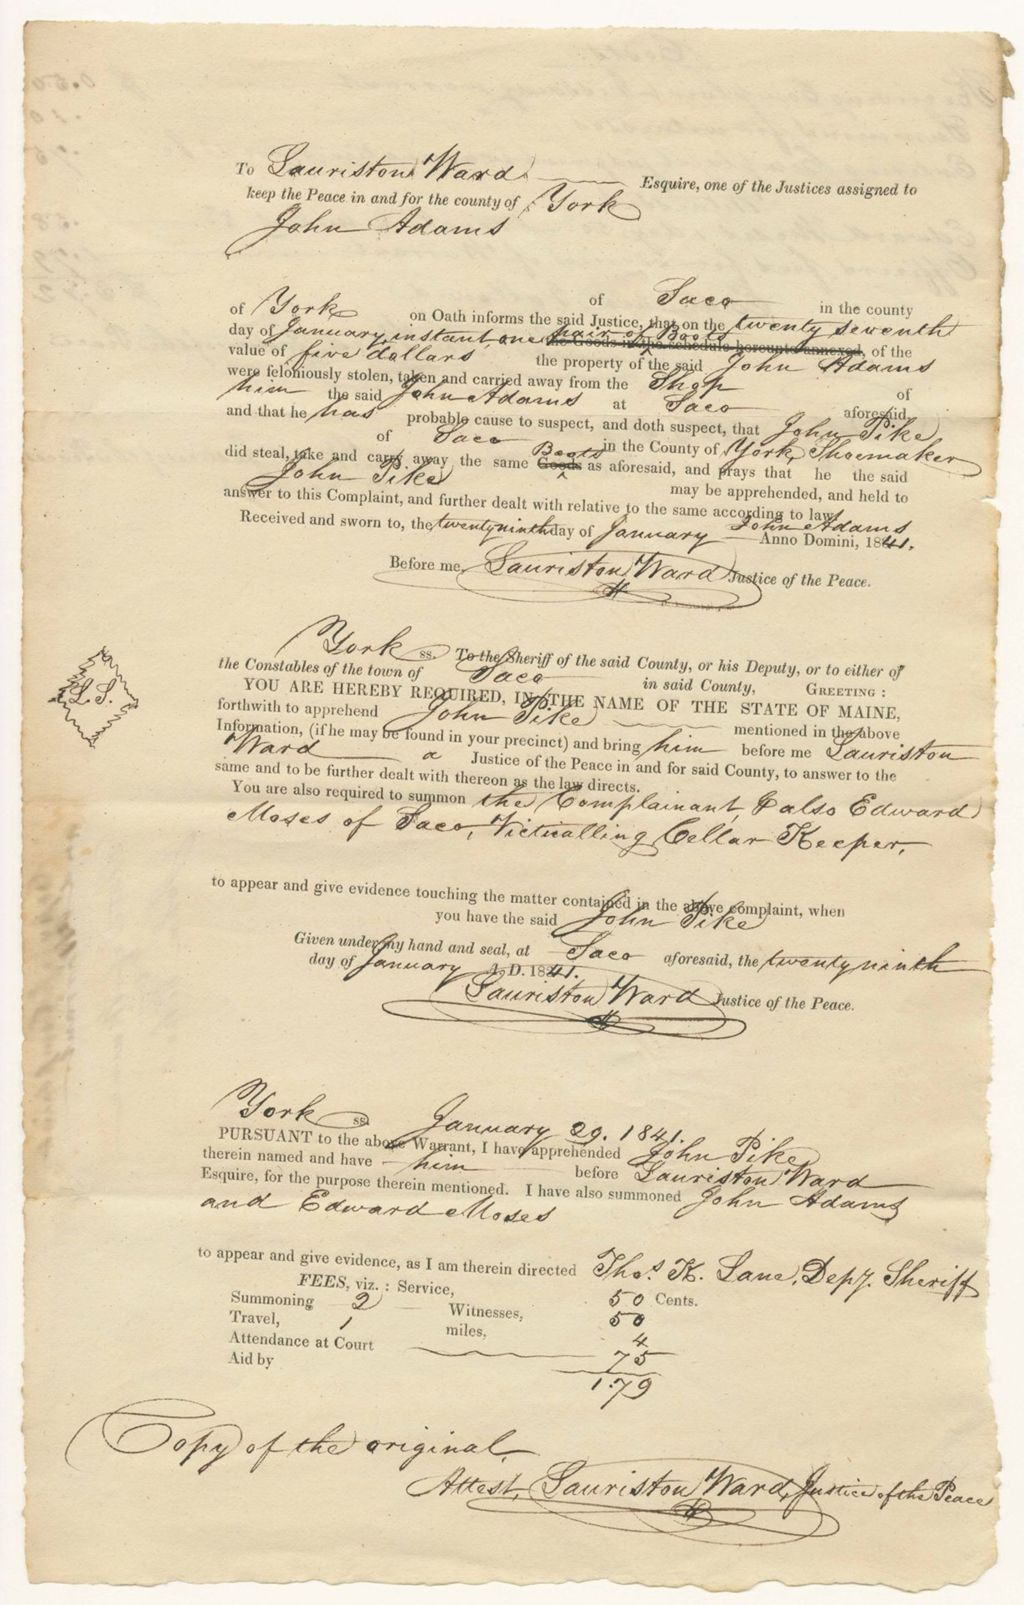 To Lauriston Ward Esquire, one of the Justices assigned to
keep the Peace in and for the county of York
John Adams
of Saco in the county
of York on Oath informs the said Justice, that on the twenty seventh
day of January, instant, one pair of Boots the Goods in the schedule hereunto annexed, of the
value of five dollars the property of the said John Adams
were feloniously stolen, taken and carried away from the Shop of
him the said John Adams at Saco aforesaid,
and that he has probable cause to suspect, and doth suspect, that John Pike
of Saco in the County of York, Shoemaker
did steal, take and carry away the same Boots Goods as aforesaid, and prays that he the said
John Pike may be apprehended, and held to
answer to this Complaint, and further dealt with relative to the same according to law.
John Adams
Received and sworn to, the twenty ninth day of January Anno Domini, 1841.
Before me, Lauriston Ward Justice of the Peace.
L.S.
York ss. To the Sheriff of the said County, or his Deputy, or to either of
the Constables of the town of Saco in said County, GREETING:
YOU ARE HEREBY REQUIRED, IN THE NAME OF THE STATE OF MAINE,
forthwith to apprehend John Pike mentioned in the above
Information, (if he may be found in your precinct) and bring him before me Lauriston
Ward a Justice of the Peace in and for said County, to answer to the
same and to be further dealt with thereon as the law directs.
You are also required to summon the Complainant, & also Edward
Moses of Saco, Victualling Cellar Keeper,
to appear and give evidence touching the matter contained in the above complaint, when
you have the said John Pike
Given under my hand and seal, at Saco aforesaid, the twenty ninth
day of January A. D. 1841.
Lauriston Ward Justice of the Peace.
York ss. January 29. 1841.
PURSUANT to the above Warrant, I have apprehended John Pike
therein named and have him before Lauriston Ward
Esquire, for the purpose therein mentioned. I have also summoned John Adams
and Edward Moses
to appear and give evidence, as I am therein directed Thos. K. Lane, Depy. Sheriff
FEES, viz.: Service, 50 Cents.
Summoning 2 Witnesses, 50
Travel, 1 miles, 4
Attendance at Court 75
Aid by
1.79
Copy of the original,
Attest, Lauriston Ward, Justice of the Peace